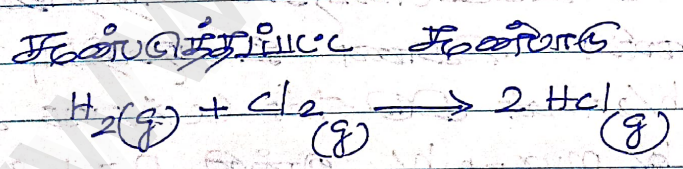 சமன்படுத்தப்பட்ட சமன்பாடு
H₂(g) + Cl₂(g) ⟶ 2 HCl(g)